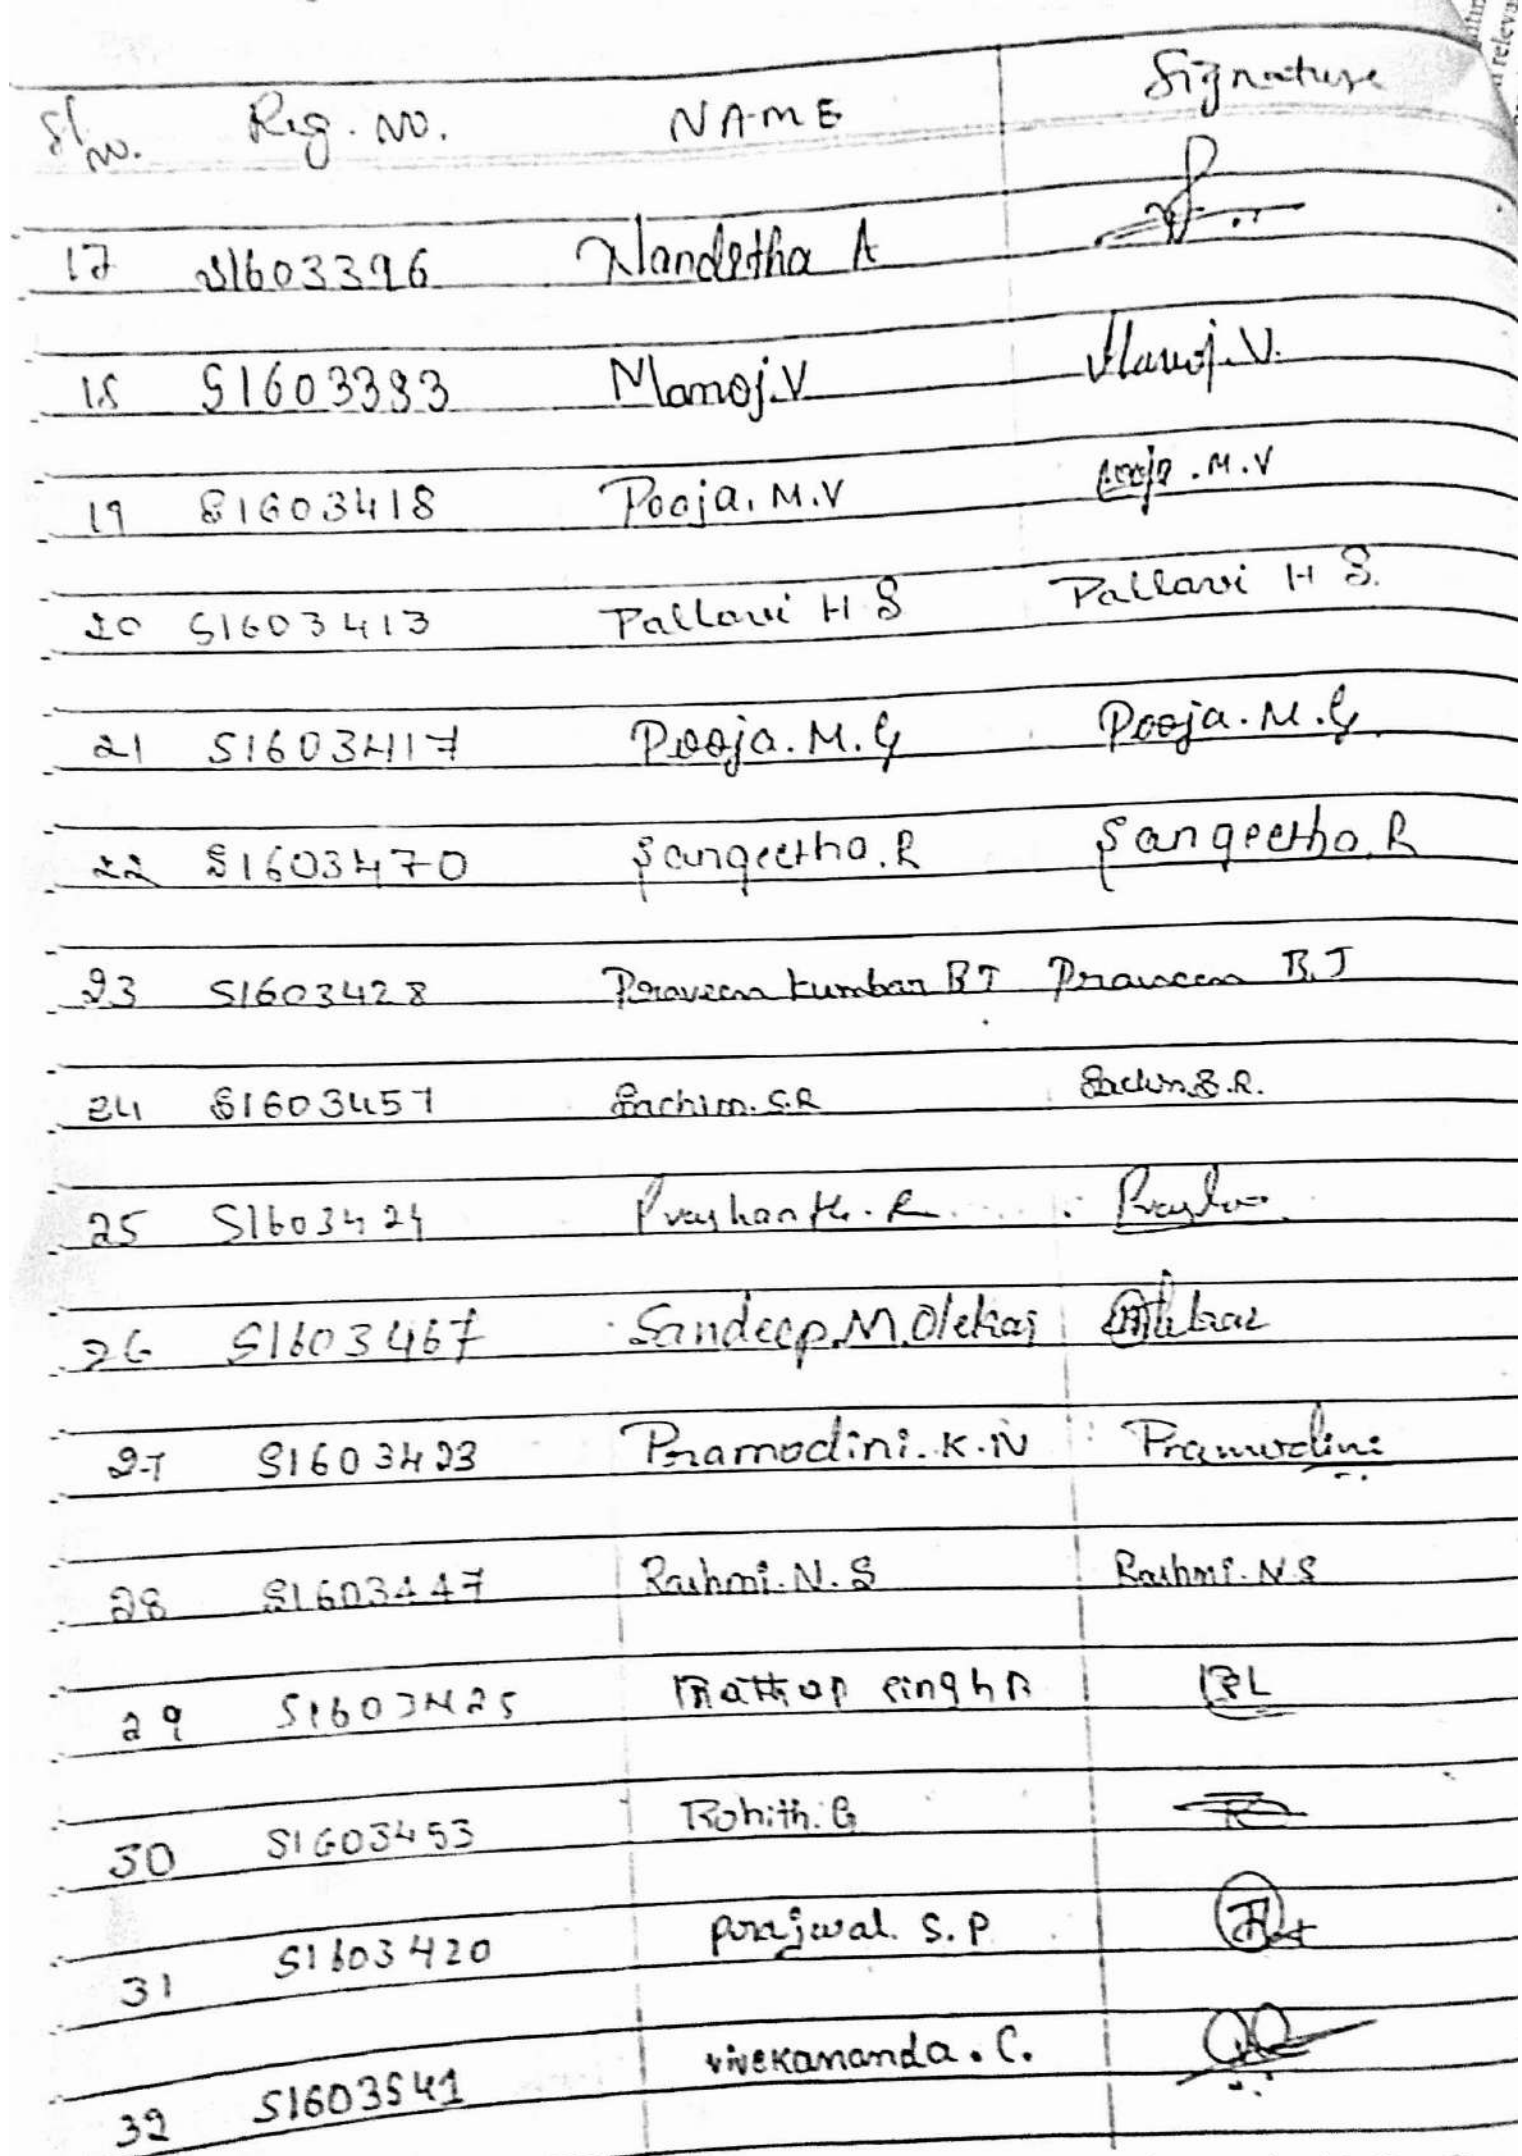 Sl no. Reg. No. NAME Signature
17 S1603396 Nanditha A
18 S1603393 Manoj.V Manoj.V.
19 S1603418 Pooja. M.V Pooja .M.V
20 S1603413 Pallavi H S Pallavi H S.
21 S1603417 Pooja. M. G Pooja. M. G.
22 S1603470 Sangeetha. R Sangeetha. R
23 S1603428 Praveen kumbar B J Praveen B. J
24 S1603457 Sachin. S.R Sachin.S.R.
25 S1603424 Prashanth. R
26 S1603467 Sandeep.M.Olekar Olekar
27 S1603423 Pramodini. K. N Pramodini
28 S1603447 Rashmi. N. S Rashmi. N S
29 S1603425 singh
30 S1603453 Rohith. G
31 S1603420 prajwal. S. P
32 S1603541 vivekananda. C.